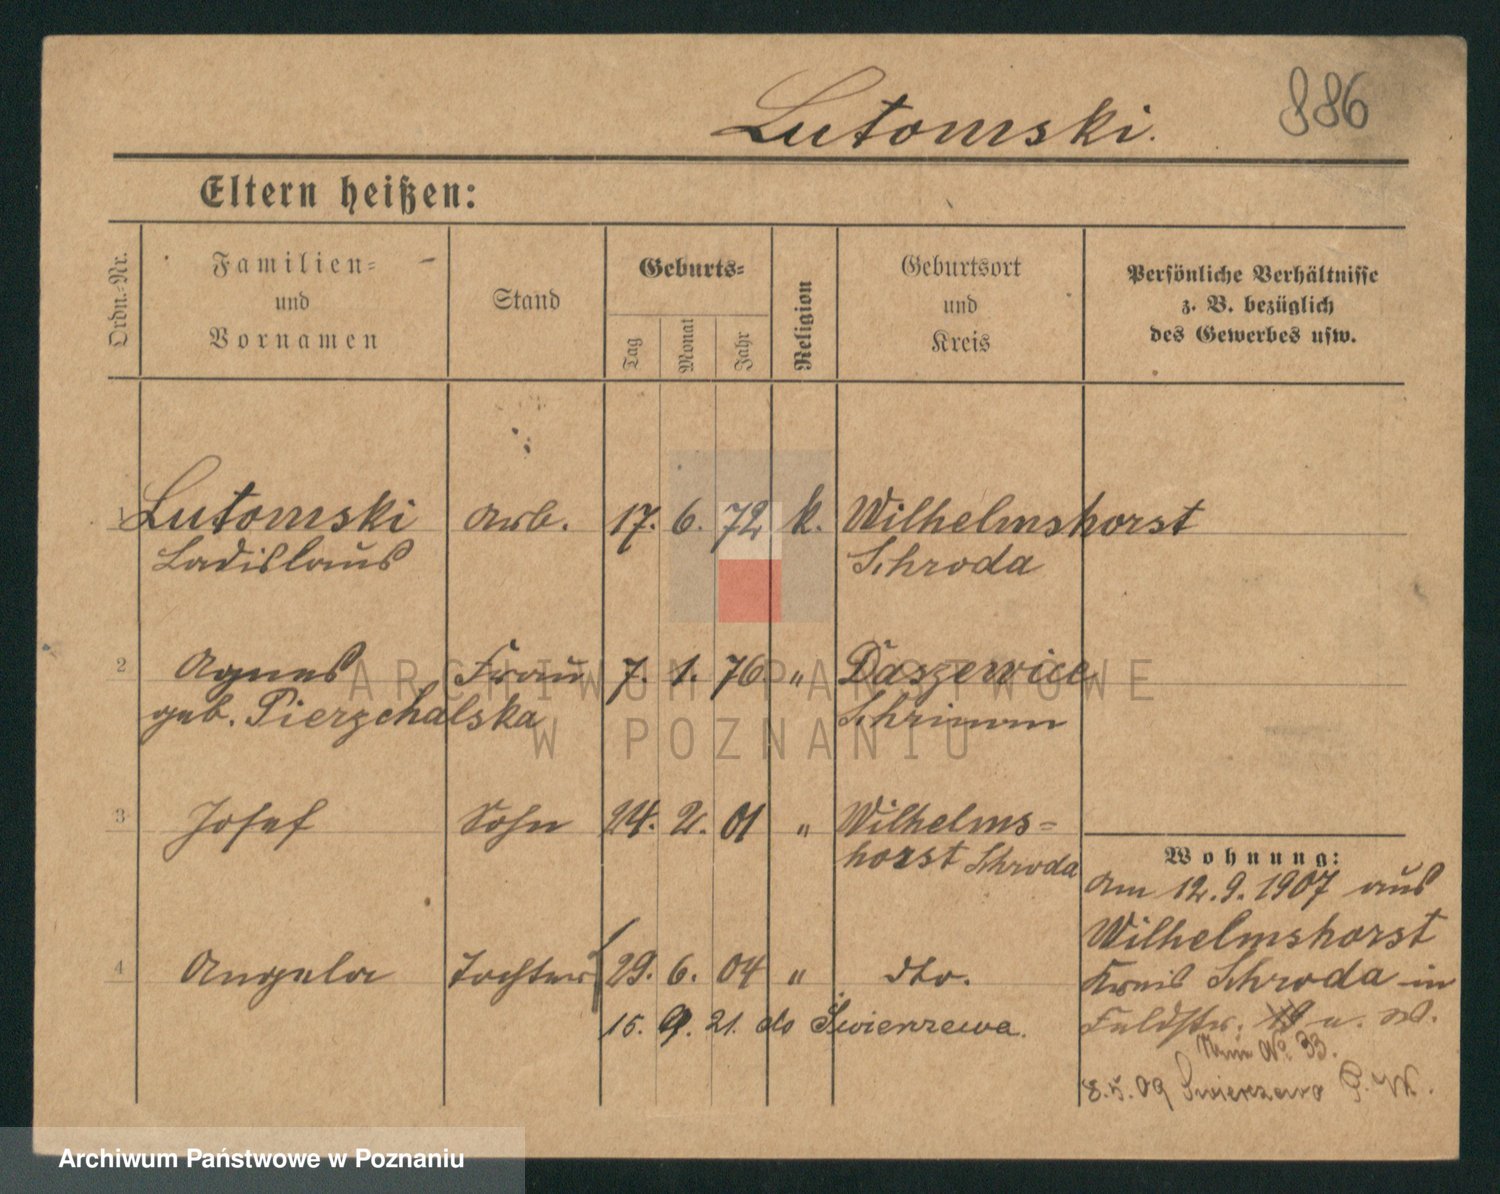 886
Lutomski.
Eltern heißen:
Ordn.-Nr.
Familien-
und
Vornamen
Stand
Geburts-
Tag
Monat
Jahr
Religion
Geburtsort
und
Kreis
Persönliche Verhältnisse
z. B. bezüglich
des Gewerbes usw.
1 Lutomski Arb. 17. 6. 72 k. Wilhelmshorst
Ladislaus Schroda
2 Agnes Frau 7. 1. 76. " Daszewice
geb. Pierzchalska Schrimm
3 Josef Sohn 24. 2. 01 " Wilhelms-
horst Schroda
Wohnung:
Am 12.9.1907 aus
Wilhelmshorst
Kreis Schroda in
Feldstr. 19 a. W.
No. 33.
8.5.09 Swierzewo P. W.
4 Angela Tochter 29. 6. 04 " dto.
15. 9. 21. do Świerzewa.
ARCHIWUM PAŃSTWOWE
W POZNANIU
Archiwum Państwowe w Poznaniu